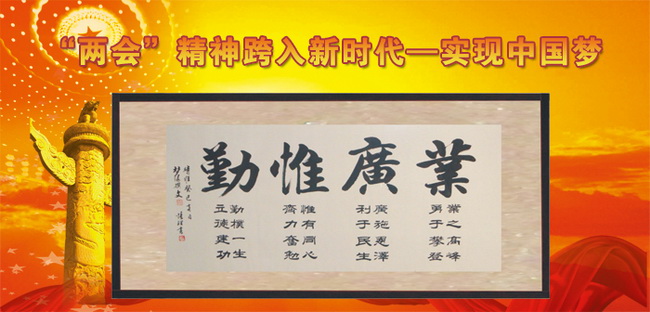 “两会”精神跨入新时代—实现中国梦
業廣惟勤
業之高峰
勇于攀登
廣施惠澤
利于民生
惟有同心
齊力奮勉
勤樸一生
立德建功